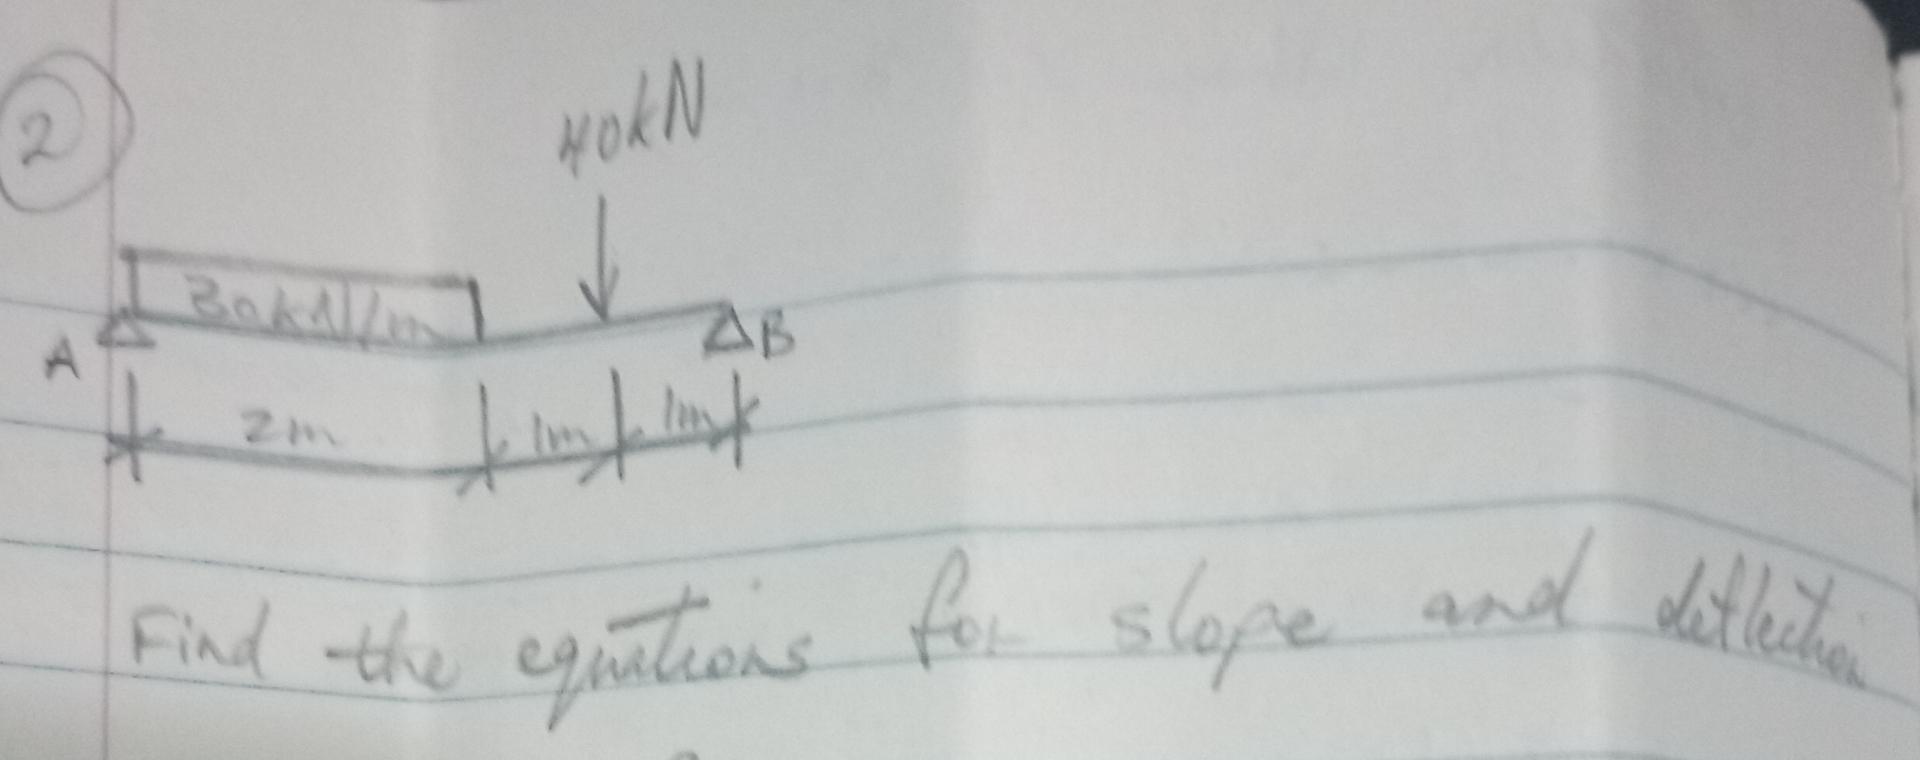 2
40kN
30kN/m
A
B
2m 1m 1m
Find the equations for slope and deflection